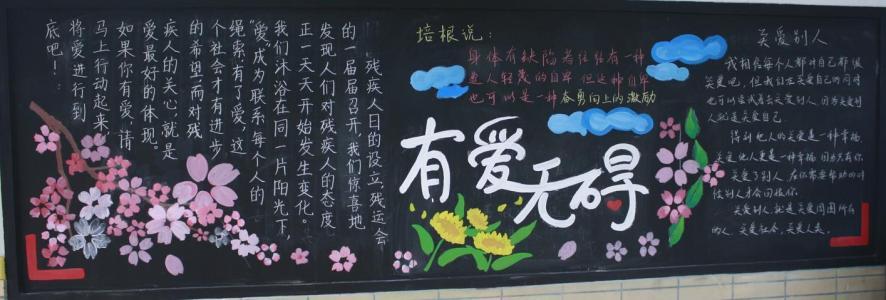 残疾人日的设立,残运会
的一届届召开,我们惊喜地
发现人们对残疾人的态度
正一天天开始发生变化。
我们沐浴在同一片阳光下,
“爱成为联系每个人的
绳索,有了爱,这
个社会才有进步
的希望,而对残
疾人的关心,就是
爱最好的体现。
如果你有爱,请
马上行动起来,
将爱进行到
底吧!
培根说:
身体有缺陷者往往有一种
遭人轻蔑的自卑 但这种自卑
也可以是一种奋勇向上的激励
有爱无碍
关爱别人
我相信每个人都对自己都很
关爱吧,但我们在关爱自己的同时
也可以尝试着去关爱别人,因为关爱别
人就是关爱自己.
得到他人的关爱是一种幸福,
关爱他人更是一种幸福.因为只有你
关爱了别人,在你需要帮助的时
候别人才会回报你.
关爱别人,就是关爱周围所有
的人,关爱社会,关爱人类.